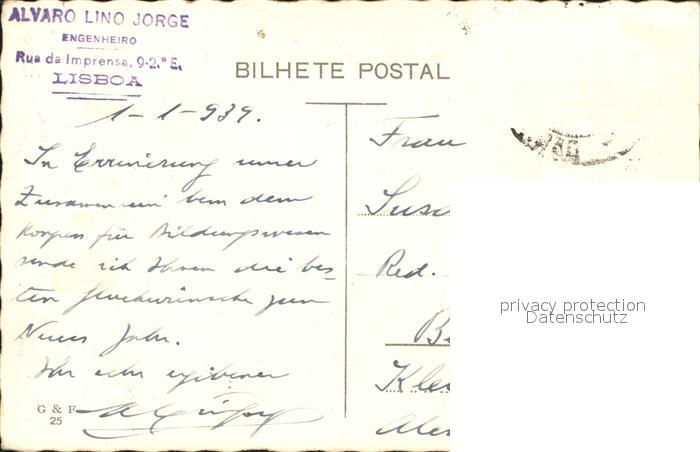 ALVARO LINO JORGE
ENGENHEIRO
Rua da Imprensa, 9-2.º E.
LISBOA
BILHETE POSTAL
1-1-939.
In Errinerung unser
Zusammen beim dem
Korpus für Bildungswesen
sende ich Ihnen die bes-
ten zum
Neues Jahr.
Ihr sehr
G & F
25
Frau
Red.
privacy protection
Datenschutz